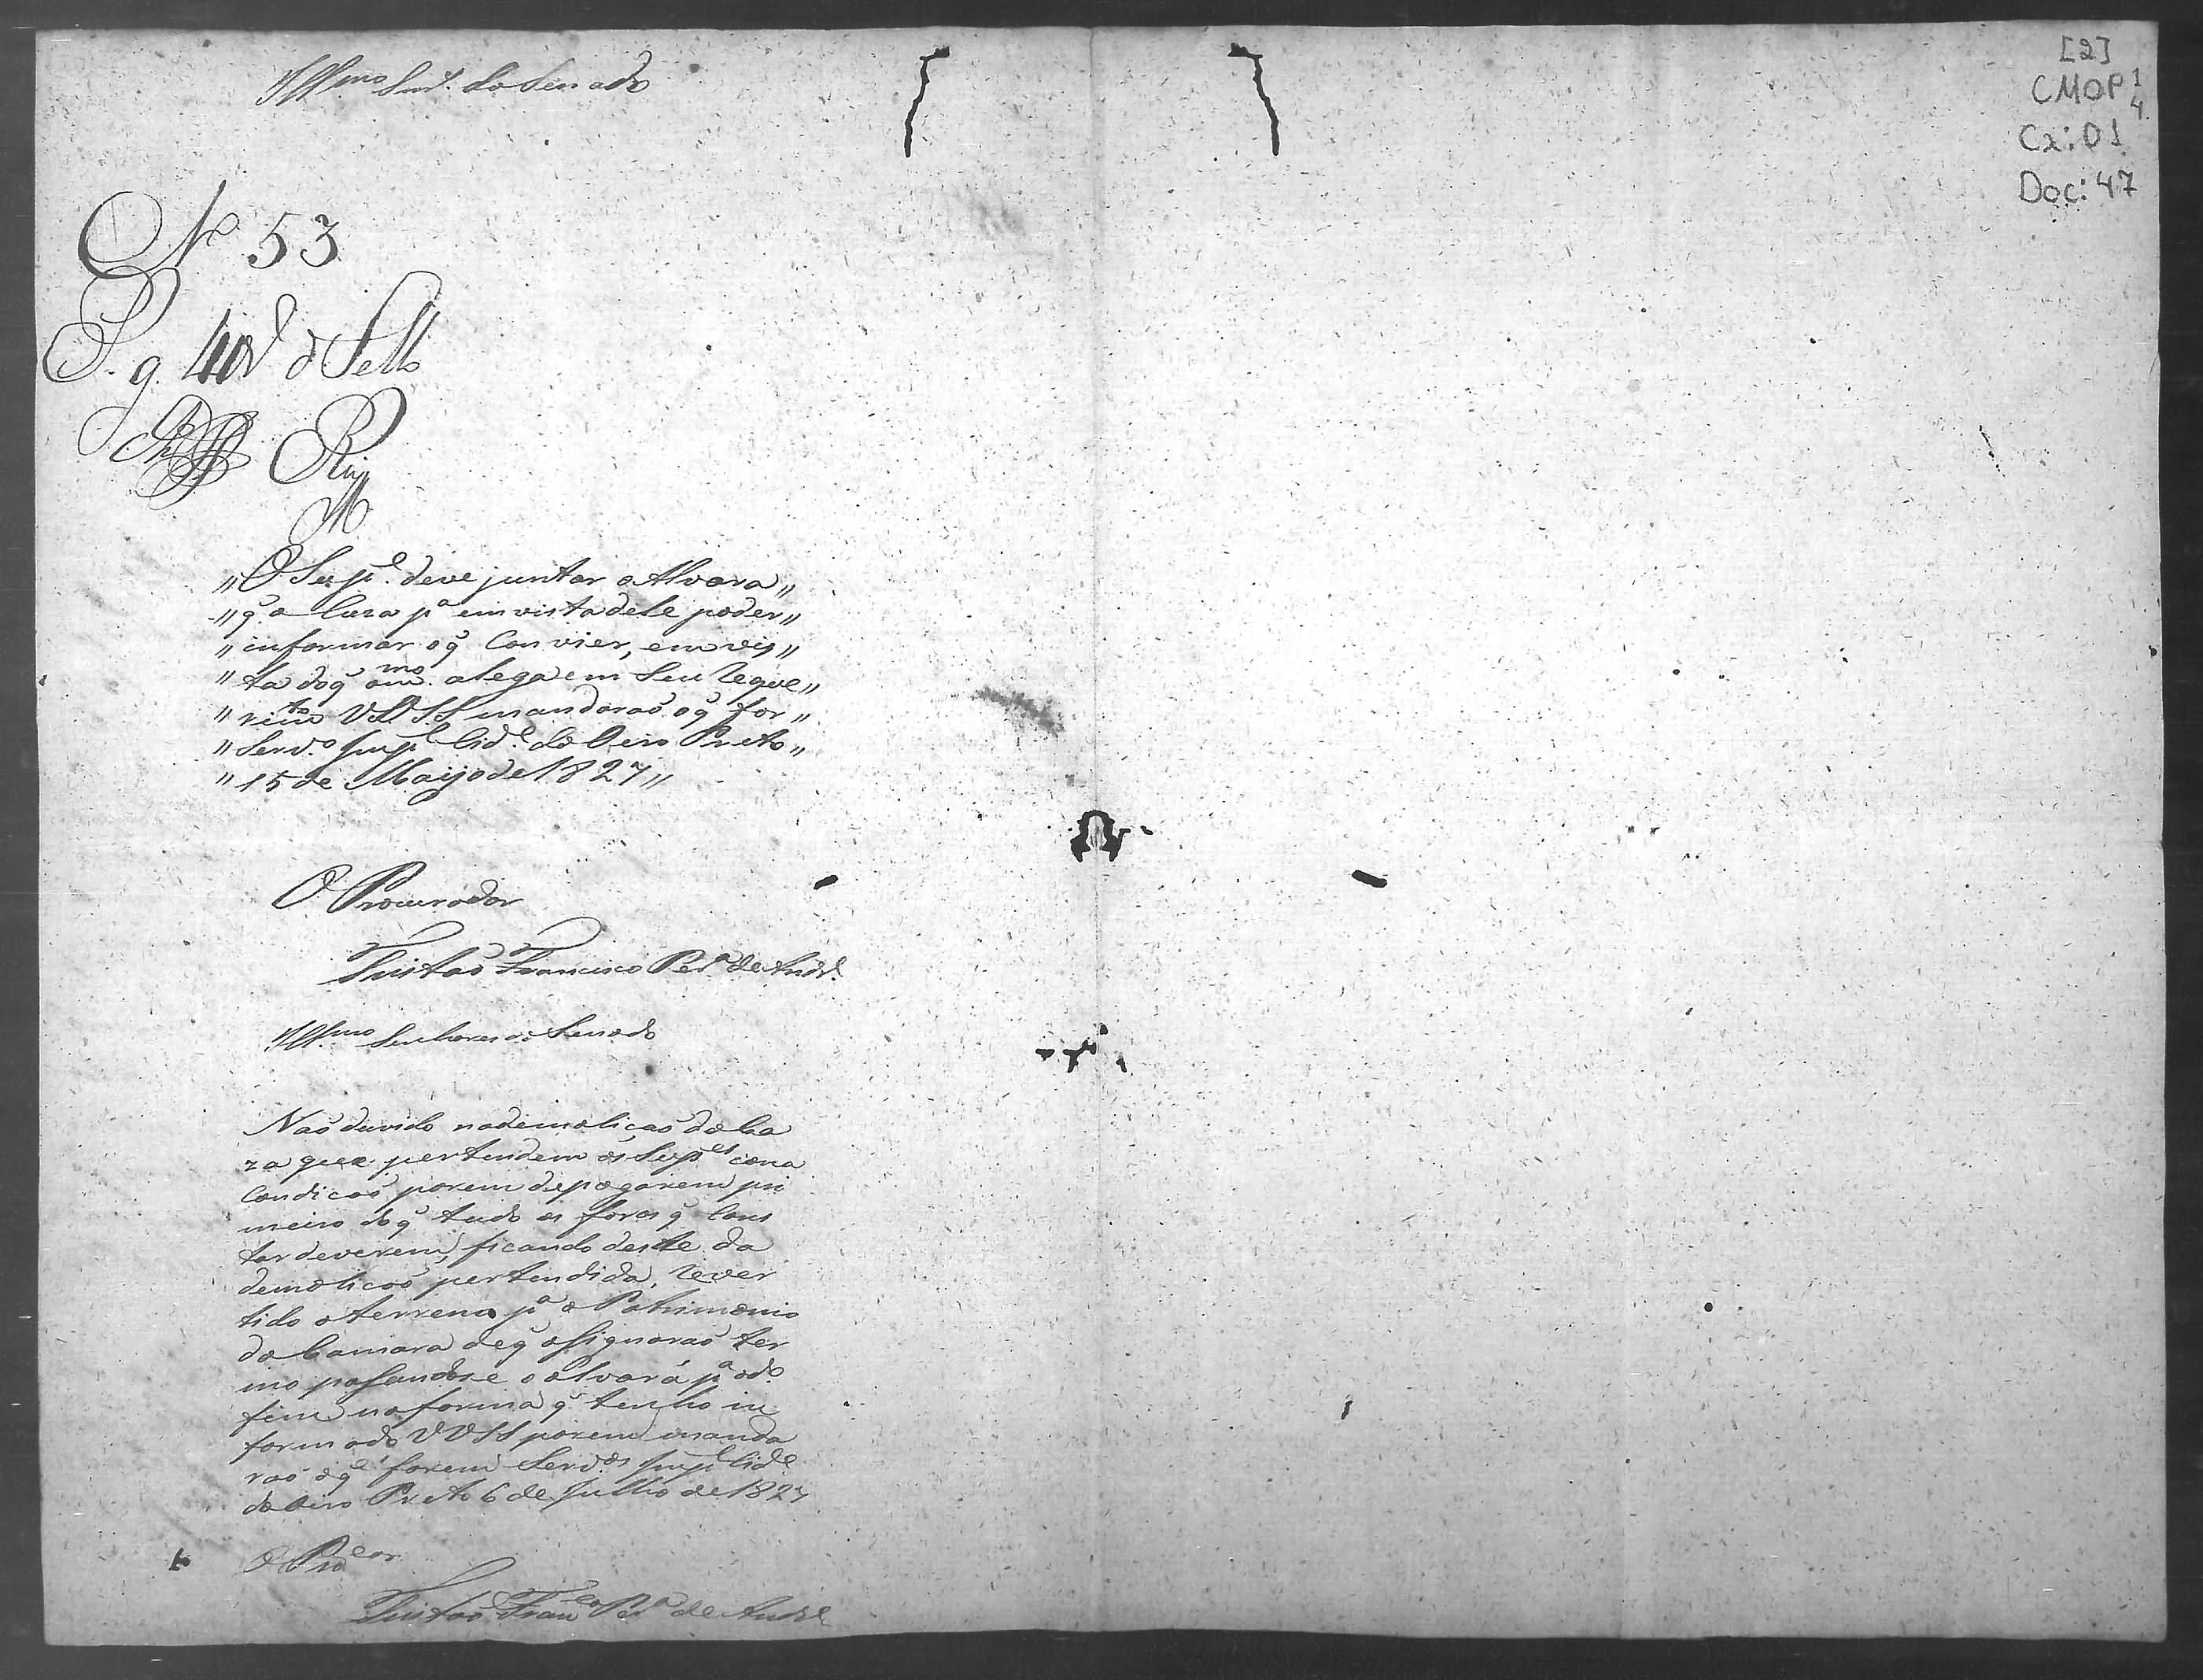 Illmos Snrs. do Senado
[2]
CMOP 1
4
Cx: 01
Doc: 47
No 53
P. g. 40 rs d Sello
Ruy
M
"O Supe. deve juntar o Alvara"
"q. o Caza pa em vista dele poder"
"informar o q̃ Convier, em vis"
"ta do q̃ o mmo. alega em Seu Reque"
"rimto VVSSS mandaraõ o q̃ for"
"Servo. Impl Cide. do Oiro Preto"
"15 de Maijo de 1827"
O Procurador
Tristaõ Francisco Pera. de Andre.
Illmos Senhores do Senado
Naõ duvido na demoliçaõ da Ca
za que pertendem os Supes com a
Condicaõ porem de pagarem pri
meiro do q̃ tudo os foros q̃ Cons
tar deverem, ficando deste da
demolicaõ pertendida, Rever
tido o terreno pa o Patrimonio
da Camara de q̃ assignaraõ ter
mo passandose o Alvará pa o do.
fim na forma q̃ tenho in
formado VVSS porem manda
raõ o qe forem Servos Impl Cide.
do Oiro Preto 6 de Julho de 1827
O Prodor
Tristaõ Franco Pera de Andre